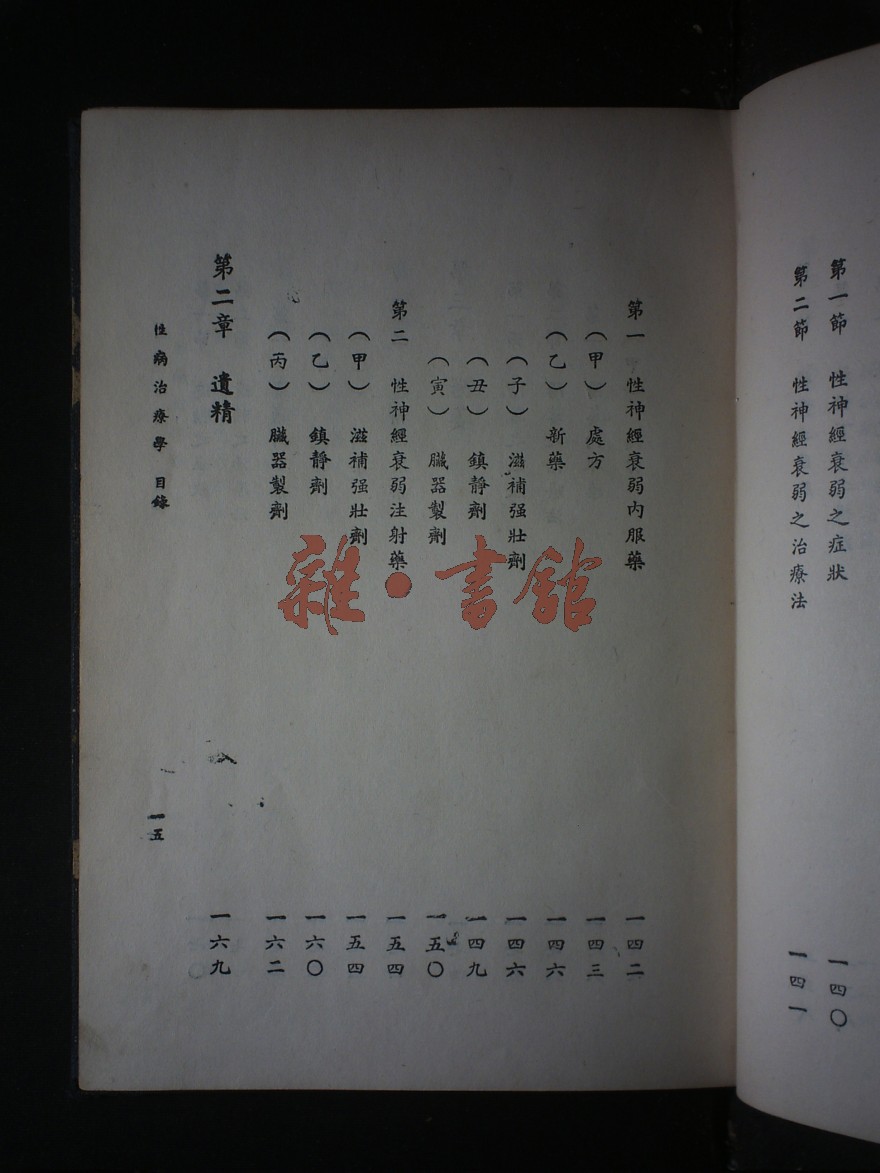 第一節　性神經衰弱之症狀　一四〇
第二節　性神經衰弱之治療法　一四一
第一　性神經衰弱內服藥　一四二
（甲）　處方　一四三
（乙）　新藥　一四六
（子）　滋補强壯劑　一四六
（丑）　鎮靜劑　一四九
（寅）　臟器製劑　一五〇
第二　性神經衰弱注射藥　一五四
（甲）　滋補强壯劑　一五四
（乙）　鎮靜劑　一六〇
（丙）　臟器製劑　一六二
第二章　遺精　一六九
性病治療學　目錄　一五
雜·書館